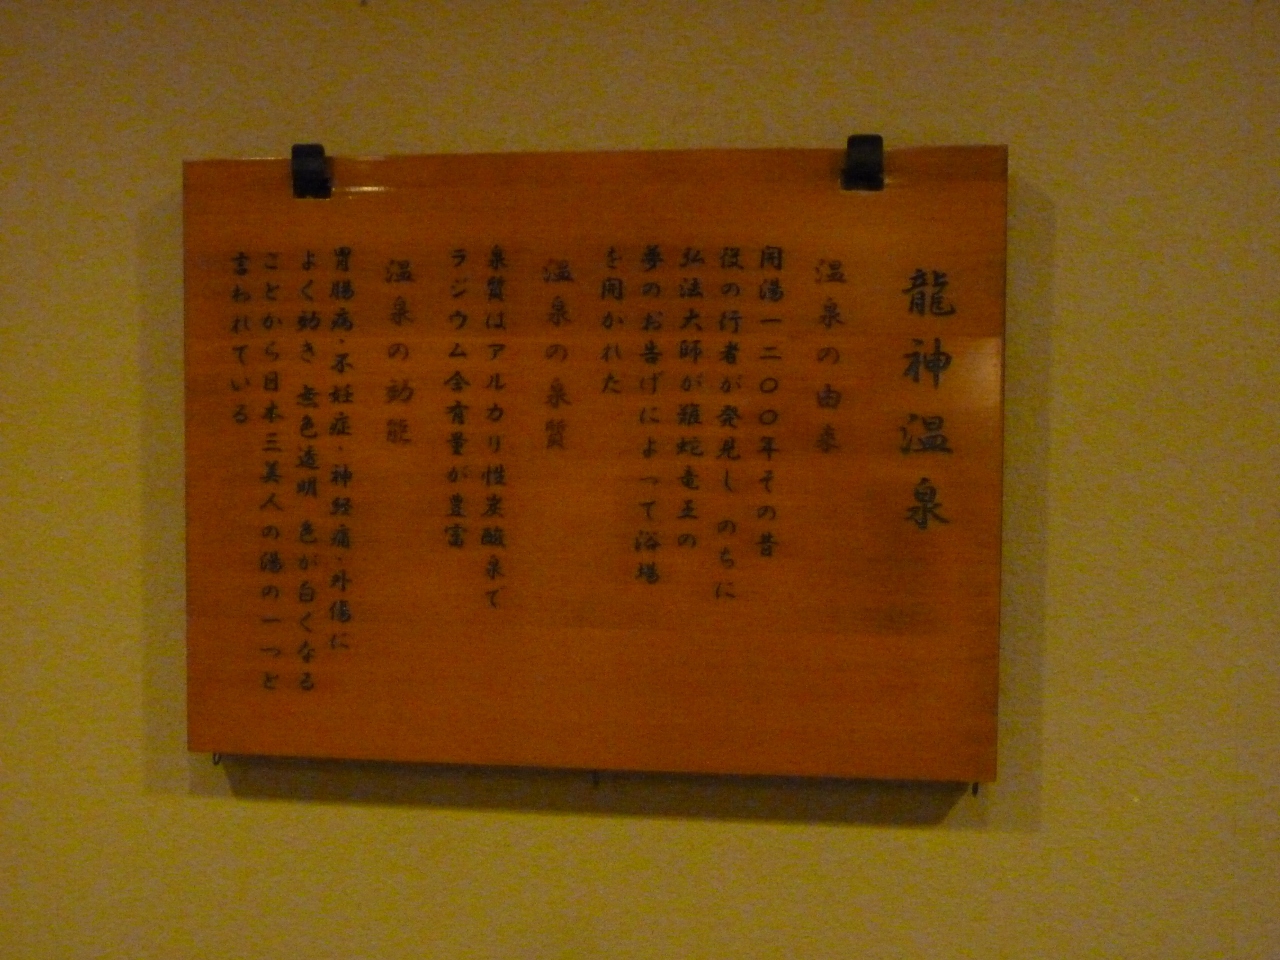 龍神温泉
温泉の由来
開湯一二〇〇年その昔
役の行者が発見し のちに
弘法大師が難蛇竜王の
夢のお告げによって浴場
を開かれた
温泉の泉質
泉質はアルカリ性炭酸泉で
ラジウム含有量が豊富
温泉の効能
胃腸病・不妊症・神経痛・外傷に
よく効き 無色透明 色が白くなる
ことから日本三美人の湯の一つと
言われている